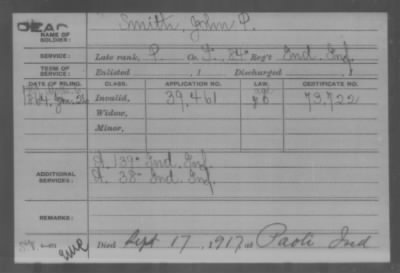 DEAD
NAME OF SOLDIER: Smith, John P.
SERVICE: Late rank, P. Co. F, 24" Reg't Ind. Inf.
TERM OF SERVICE: Enlisted , 1 Discharged , 1
DATE OF FILING. CLASS. APPLICATION NO. LAW. CERTIFICATE NO.
1864, Jan. Invalid, 39.461 73.722
Widow,
Minor,
ADDITIONAL SERVICES: A. 139" Ind. Inf.
A. 38" Ind. Inf.
REMARKS:
Died Sept 17, 1917, at Paoli Ind